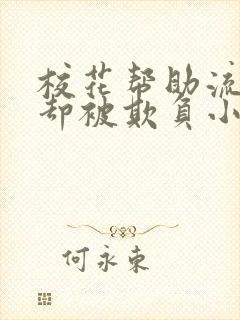 校花帮助流
却被欺负小
何永东